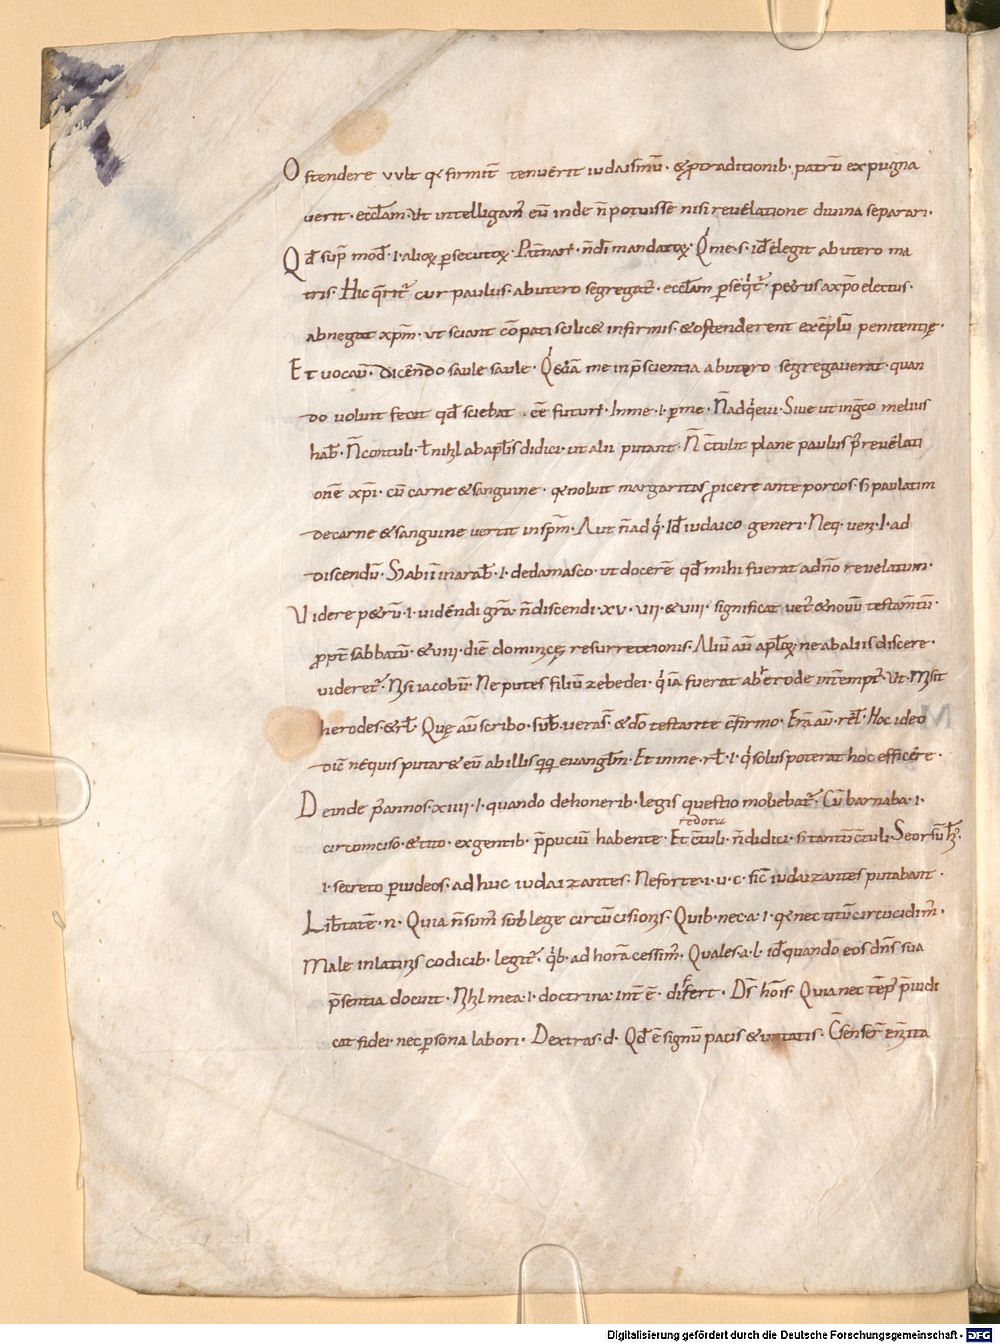 Ostendere vult qđ firmit̄ tenuerit iudaismū · & ꝓ traditionib· patrū expugna
uerit · eccl̄am · Ut intelligam̄ eū inde n̄ potuisse nisi reuelatione diuina separari ·
Qđ sup̄ mod̄ · i · alioꝝ ꝑsecutoꝝ · Pat̄narū · n̄ dī mandatoꝝ · Qͥ me · s · id ēlegit ab utero ma
tris · Hic q̄rit᷑ cur paulus · ab utero segregat᷑ · eccl̄am ꝑseqͥt᷑ · petrus a xp̄o electus ·
abnegat xp̄m · ut sciant cōpati scilic& infirmis · & ostenderent exēplū penitentię ·
Et uocau̅ · dicendo saule saule · Qͥ &iā me in p̄scientia ab utero segregauerat · quan
do uoluit fecit qđ sciebat · eē futurū · In me · i · ꝑ me · N̄ adqͥeui · Siue ut in gͣco melius
hab& · N̄ contuli · ł nihil ab apl̄is didici · ut alii putant · N̄ c̄tulit plane paulus p̄ reuelati
onē xp̄i · cū carne & sanguine · qͣ noluit margaritas ꝓicere ante porcos · s; paulatim
de carne & sanguine uertit in sp̄m · Aut n̄ ad qͥ · Id iudaico generi · Neq· ueni · i · ad
discendū · S; abii in arab̄ · i · de damasco · ut docerē qđ mihi fuerat a dn̄o reuelatum ·
Videre p&rū · i · uidendi gr̄a · n̄ discendi · xv · vii · & viii · significat uet᷑ & nouū testam̄tū ·
ꝓpt̄ sabbatū · & viii · diē dominicę resurrectionis · Aliū aū apl̄oꝝ · ne ab aliis discere ·
uideret᷑ · Nisi iacobum · Ne putes filiū zebedei · qͥ iā fuerat ab herode int̄empt᷑ · Ut · Misit
herodes · & rł · Quę aū scribo · sub · ueras̄ · & dō testante c̄firmo · Erā aū · rēł · Hoc ideo
dic̄ ne quis putar& eū ab illis qͥ euangl̄m · Et in me · rł · i · qͥ solus poterat hoc efficere ·
Deinde p̄ annos · xiiii · i · quando de honerib· legis questio mouebat᷑ · Cū barnaba · i ·
redotu
circumciso · & tito · ex gentib· p̄puciū habente · Et c̄tuli · n̄ didici · s; tantū c̄tuli · Seorsū h;
i · secreto ꝑ iudeos · ad huc iudaizantes · Ne forte · i · u · c · sic̄ iudaizantes putabant ·
Libertatē · n · Quia n̄ sum᷑ sub lege circūcisionis · Quib· nec · a · i · qͣ nec titū circūcidim᷑ ·
Male in latinis codicib· legit᷑ · qͥb· ad horā cessim᷑ · Quales · a · l · id quando eos dn̄s sua
p̄sentia docuit · Nihil mea · i · doctrina int̄ē · differt · Ds̄ hois · Quia nec tēp᷑ p̄iudi
cat fidei · nec ꝑsona labori · Dextras · d · Qđ ē signū pacis & unitatis · C̄senser̄ eni ita
Digitalisierung gefördert durch die Deutsche Forschungsgemeinschaft - DFG